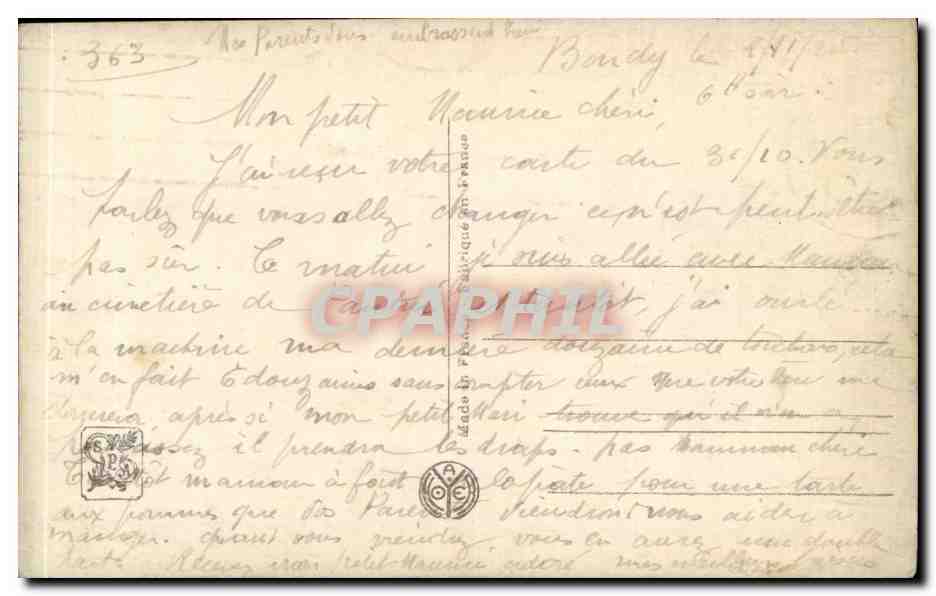 363
Nos Parents vous embrassent bien
Bondy le 1/11/
6h soir.
Mon petit Maurice chéri,
J'ai reçu votre carte du 31/10. Vous
parlez que vous allez changer ce n'est peut être
pas sûr. Ce matin j'suis allée avec Maman
au cimetière de j'ai ourlé
à la machine ma dernière douzaine de torchons, cela
m'en fait 6 douzaines sans compter ceux que votre
après si mon petit Mari trouve qu'il n'en a
pas assez il prendra les draps. pas Maman chérie
maman a fait la pâte pour une tarte
aux pommes que vos Parents viendront nous aider à
manger. quand vous viendrez vous en aurez une double
part. Recevez mon petit Maurice adoré mes meilleurs
Made in France Fabriqué en France
CPAPHIL
SPA